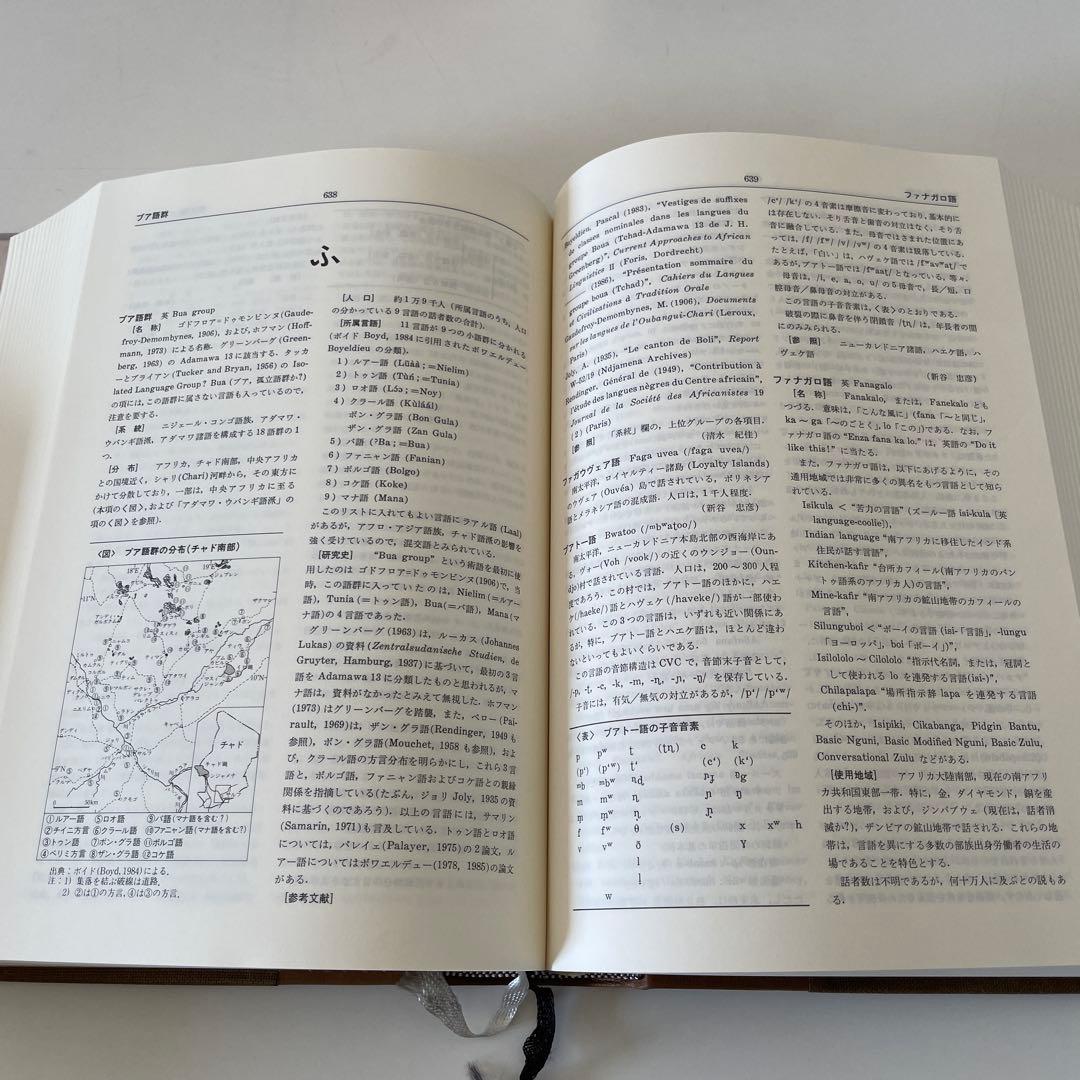 638
ブア語群
ふ
ブア語群 英 Bua group
[名 称] ゴドフロア=ドゥモンビンヌ(Gaude-
froy-Demombynes, 1906), および, ホフマン (Hoff-
mann, 1973) による名称. グリーンバーグ(Green-
berg, 1963) の Adamawa 13 に該当する. タッカ
ーとブライアン (Tucker and Bryan, 1956) の Iso-
lated Language Group? Bua (ブア, 孤立語群か?)
の項には, この語群に属さない言語も入っているので,
注意を要する.
[系 統] ニジェール・コンゴ語族, アダマワ・
ウバンギ語派, アダマワ諸語を構成する18語群の1
つ.
[分 布] アフリカ, チャド南部, 中央アフリカ
との国境近く, シャリ(Chari)河畔から, その東方に
かけて分散しており, 一部は, 中央アフリカに至る
(本項の<図>, および「アダマワ・ウバンギ語派」の
項の<図>を参照).
<図> ブア語群の分布(チャド南部)
チャド
①ルアー語 ⑤ロオ語 ⑨パ語(マナ語を含む?)
②チイニ方言 ⑥クラール語 ⑩ファニャン語(マナ語を含む?)
③トゥン語 ⑦ボン・グラ語 ⑪ボルゴ語
④ペリミ方言 ⑧ザン・グラ語 ⑫コケ語
出典:ボイド(Boyd, 1984)による.
注:1) 集落を結ぶ破線は道路.
2) ②は①の方言, ④は③の方言.
[人 口] 約1万9千人 (所属言語のうち, 人口
の分かっている9言語の話者数の合計).
[所属言語] 11言語が9つの小語群に分かれる
(ボイド Boyd, 1984 に引用されたボワエルデュー
Boyeldieu の分類).
1) ルアー語 (Lùāà ; =Nielim)
2) トゥン語 (Tùń ; =Tunia)
3) ロオ語 (Lɔ́ɔ ; =Noy)
4) クラール語 (Kùláál)
ボン・グラ語 (Bon Gula)
ザン・グラ語 (Zan Gula)
5) パ語 (ʔBa ; =Bua)
6) ファニャン語 (Fanian)
7) ボルゴ語 (Bolgo)
8) コケ語 (Koke)
9) マナ語 (Mana)
このリストに入れてもよい言語にラアル語 (Laal)
があるが, アフロ・アジア語族, チャド語派の影響を
強く受けているので, 混交語とみられている.
[研究史] “Bua group” という術語を最初に使
用したのは ゴドフロア=ドゥモンビンヌ(1906)で, 当
時, この語群に入っていたのは, Nielim (=ルアー
語), Tunia (=トゥン語), Bua(=パ語), Mana(マ
ナ語)の4言語であった.
グリーンバーグ(1963)は, ルーカス (Johannes
Lukas) の資料 (Zentralsudanische Studien, de
Gruyter, Hamburg, 1937) に基づいて, 最初の3言
語を Adamawa 13 に分類したものと思われるが, マ
ナ語は, 資料がなかったとみえて無視した. ホフマン
(1973) はグリーンバーグを踏襲, また, ペロー (Pai-
rault, 1969)は, ザン・グラ語(Rendinger, 1949 も
参照), ボン・グラ語(Mouchet, 1958 も参照), およ
び, クラール語の方言分布を明らかにし, これら3言
語と, ボルゴ語, ファニャン語およびコケ語との親縁
関係を指摘している(たぶん, ジョリ Joly, 1935 の資
料に基づくのであろう). 以上の言語には, サマリン
(Samarin, 1971)も言及している. トゥン語とロオ語
については, パレイェ(Palayer, 1975)の2論文, ル
アー語についてはボワエルデュー(1978, 1985)の論文
がある.
[参考文献]
639
ファナガロ語
Boyeldieu, Pascal (1983), “Vestiges de suffixes
de classes nominales dans les langues du
groupe Boua (Tchad-Adamawa 13 de J. H.
Greenberg)”, Current Approaches to African
Linguistics II (Foris, Dordrecht)
(1986), “Présentation sommaire du
groupe boua (Tchad)”, Cahiers du Langues
et Civilizations à Tradition Orale
Gaudefroy-Demombynes, M. (1906), Documents
sur les langues de l'Oubangui-Chari (Leroux,
Paris)
Joly, A. (1935), “Le canton de Boli”, Report
W-52/19 (Ndjamena Archives)
Rendinger, Général de (1949), “Contribution à
l'étude des langues nègres du Centre africain”,
Journal de la Société des Africanistes 19
(2) (Paris)
[参 照] 「系統」欄の, 上位グループの各項目.
(清水 紀佳)
ファガウヴェア語 Faga uvea /faga uvea/
南太平洋, ロイヤルティー諸島 (Loyalty Islands)
のウヴェア (Ouvéa) 島で話されている, ポリネシア
語とメラネシア語の混成語. 人口は, 1千人程度.
(新谷 忠彦)
ブアトー語 Bwatoo (/ᵐbʷaṭoo/)
南太平洋, ニューカレドニア本島北部の西海岸にあ
る, ヴォー(Voh /vook/) の近くのウンジョー (Oun-
djo)村で話されている言語. 人口は, 200〜300人程
度であろう. この村では, ブアトー語のほかに, ハエ
ケ(/haeke/) 語とハヴェケ (/haveke/) 語が一部使わ
れている. この3つの言語は, いずれも近い関係にあ
るが, 特に, ブアトー語とハエケ語は, ほとんど違わ
ないといってもよいくらいである.
この言語の音節構造は CVC で, 音節末子音として,
/-p, -ṭ, -c, -k, -m, -ṇ, -ɲ, -ŋ, -l/ を保存している.
子音には, 有気/無気の対立があるが, /pʻ/ /pʻʷ/
<表> ブアトー語の子音音素
p pʷ ṭ (tɳ) c k
(pʻ) (pʻʷ) ṭʻ (cʻ) (kʻ)
ᵐb ᵐbʷ ⁿḍ ᶮɟ ᵑg
m mʷ ṇ ɲ ŋ
f fʷ θ (s) x xʷ h
v vʷ ð γ
l
w
/cʻ/ /kʻ/ の4音素は摩擦音に変わっており, 基本的に
は存在しない. そり舌音と歯音の対立はなく, そり舌
音に融合している. また, 母音ではさまれた位置にあ
っては, /f/ /fʷ/ /v/ /vʷ/ の4音素は脱落している.
たとえば, 「白い」は, ハヴェケ語では /fʷavʷaṭ/ で
あるが, ブアトー語では /fʷaaṭ/ となっている, 等々.
母音は, /i, e, a, o, u/ の5母音で, 長/短, 口
腔母音/鼻母音の対立がある.
この言語の子音音素は, <表>のとおりである.
破裂の際に鼻音を伴う閉鎖音 /tɳ/ は, 年長者の間
にのみみられる.
[参 照] ニューカレドニア諸語, ハエケ語, ハ
ヴェケ語
(新谷 忠彦)
ファナガロ語 英 Fanagalo
[名 称] Fanakalo, または, Fanekalo とも
つづる. 意味は, 「こんな風に」(fana「〜と同じ」,
ka〜ga「〜のごとく」, lo「この」)である. なお, フ
ァナガロ語の “Enza fana ka lo.” は, 英語の “Do it
like this!” に当たる.
また, ファナガロ語は, 以下にあげるように, その
通用地域では非常に多くの異名をもつ言語として知ら
れている.
Isikula < “苦力の言語” (ズールー語 isi-kula [英
language-coolie]),
Indian language “南アフリカに移住したインド系
住民が話す言語”,
Kitchen-kafir “台所カフィール(南アフリカのバン
トゥ語系のアフリカ人)の言語”,
Mine-kafir “南アフリカの鉱山地帯のカフィールの
言語”,
Silunguboi < “ボーイの言語 (isi-「言語」, -lungu
「ヨーロッパ」, boi「ボーイ」)”,
Isilololo〜Cilololo “指示代名詞, または, 冠詞と
して使われる lo を連発する言語 (isi-)”,
Chilapalapa “場所指示辞 lapa を連発する言語
(chi-)”.
そのほか, Isipiki, Cikabanga, Pidgin Bantu,
Basic Nguni, Basic Modified Nguni, Basic Zulu,
Conversational Zulu などがある.
[使用地域] アフリカ大陸南部, 現在の南アフリ
カ共和国東部一帯. 特に, 金, ダイヤモンド, 銅を産
出する地帯, および, ジンバブウェ (現在は, 話者消
滅か?), ザンビアの鉱山地帯で話される. これらの地
帯は, 言語を異にする多数の部族出身労働者の生活の
場であることを特色とする.
話者数は不明であるが, 何十万人に及ぶとの説もあ
る.